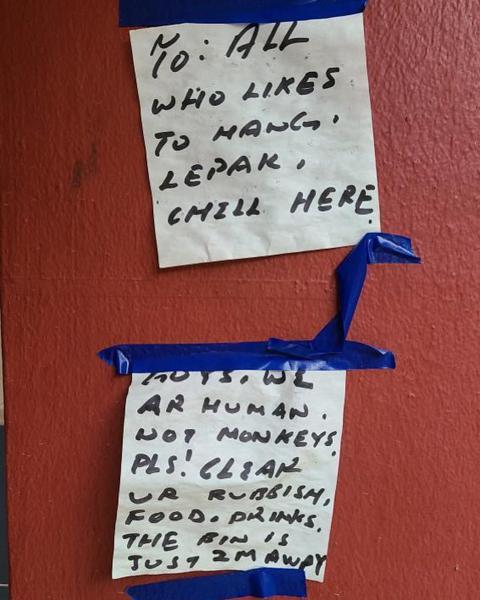 TO: ALL
WHO LIKES
TO HANG,
LEPAK,
CHILL HERE.
GUYS, WE
AR HUMAN.
NOT MONKEYS.
PLS! CLEAR
UR RUBBISH,
FOOD. DRINKS.
THE BIN IS
JUST 2M AWAY